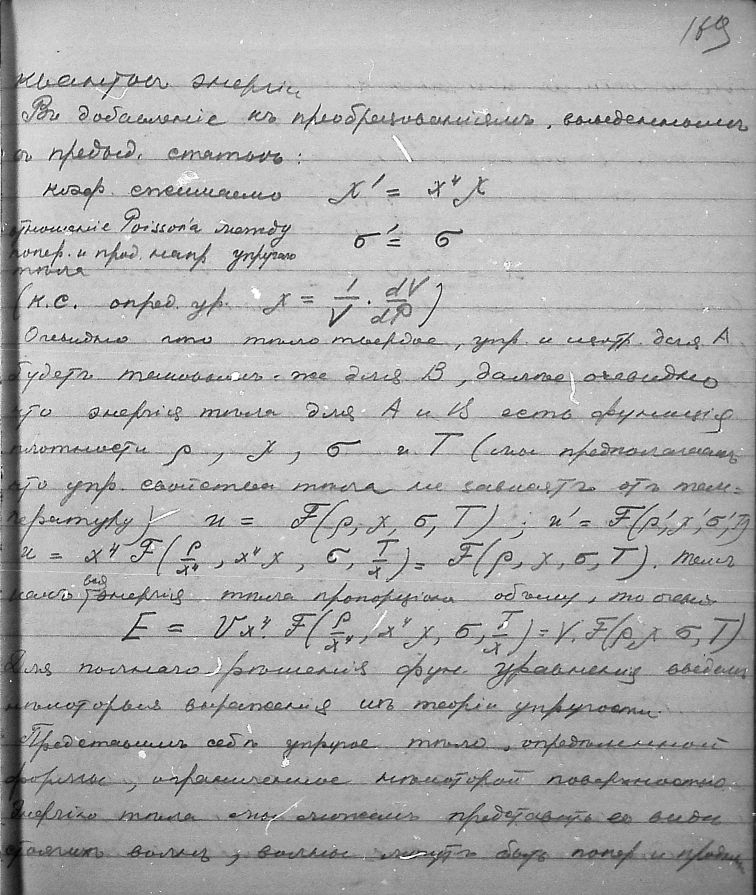 169
кванты энергіи
Въ добавленіе къ преобразованіямъ, выведеннымъ
въ предыд. статьѣ:
коэф. сжимаемо χ' = x⁴χ
отношеніе Poisson'a между σ' = σ
попер. и прод. напр упругаго
тѣла
(н.с. опред. ур. χ = 1/V · dV/dP)
Очевидно что тѣло твердое, упр. и изотр. для А
будетъ таковымъ-же для В, далѣе очевидно
что энергія тѣла для А и В есть функція
плотности ρ, χ, σ и T (мы предполагаемъ
что упр. свойства тѣла не зависятъ отъ тем-
пературы) u = F(ρ, χ, σ, T); u' = F(ρ', χ', σ', T')
u = x⁴ F(ρ/x⁴, x⁴χ, σ, T/x) = F(ρ, χ, σ, T). Такъ
какъ вся энергія тѣла пропорціон объему, то очев.
E = V x⁴ F(ρ/x⁴, x⁴χ, σ, T/x) = V. F(ρ, χ σ, T)
Для полнаго рѣшенія фун. уравненія введемъ
нѣкоторыя выраженія изъ теоріи упругости.
Представимъ себѣ упругое тѣло, опредѣленной
формы, ограниченное нѣкоторой поверхностью.
Энергію тѣла мы можемъ представить въ видѣ
стоячихъ волнъ, волны могутъ быть попер и продол